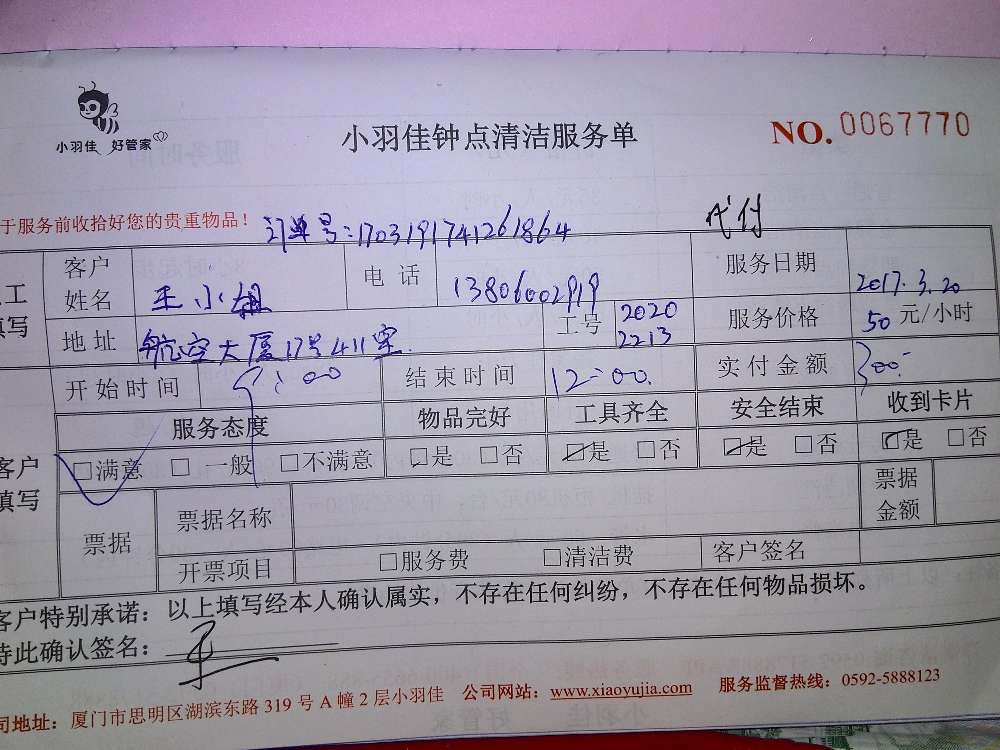 小羽佳 好管家
小羽佳钟点清洁服务单
NO. 0067770
于服务前收拾好您的贵重物品！
订单号:1703191741261864
代付
客户姓名 王小姐 电话 13806002919 服务日期 2017.3.20
工
填写
地址 航空大厦17号411室. 工号 2020 2213 服务价格 50 元/小时
开始时间 9:00 结束时间 12:00. 实付金额 300.-
服务态度 物品完好 工具齐全 安全结束 收到卡片
客户
填写
□满意 □一般 □不满意 □是 □否 □是 □否 □是 □否 □是 □否
票据 票据名称 票据金额
开票项目 □服务费 □清洁费 客户签名
客户特别承诺：以上填写经本人确认属实，不存在任何纠纷，不存在任何物品损坏。
特此确认签名：
司地址：厦门市思明区湖滨东路 319 号 A 幢 2 层小羽佳 公司网站：www.xiaoyujia.com 服务监督热线：0592-5888123